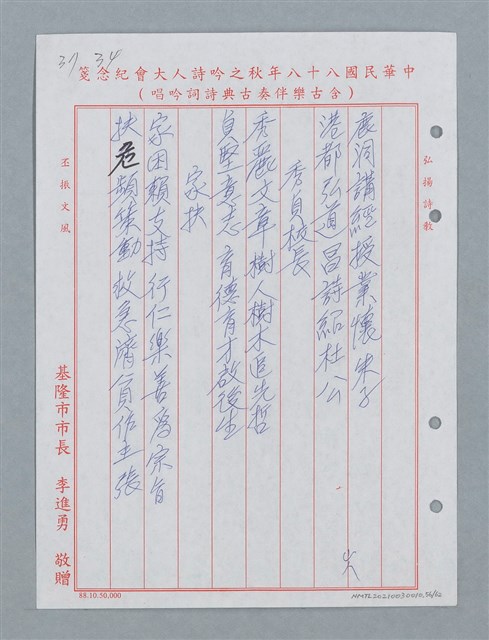 37 34
中華民國八十八年秋之吟詩人大會紀念箋
（含古樂伴奏古典詩詞吟唱）
弘揚詩教
鹿洞講經授業懷朱子
港都弘道昌詩紹杜公
秀貞校長
秀麗文章樹人樹木追先哲
貞堅意志育德育才啟後生
家扶
家困賴支持行仁樂善為宗旨
扶危頻策動救急濟貧佐主張
丕振文風
基隆市市長 李進勇 敬贈
88.10.50,000
NMTL20210030010.56/62